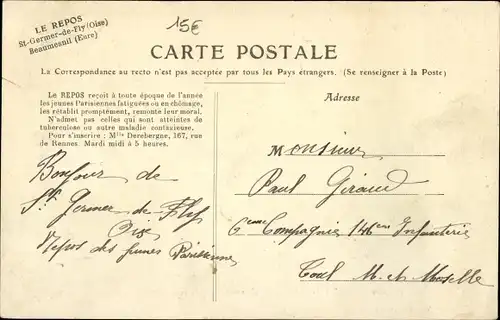 LE REPOS
St-Germer-de-Fly (Oise)
Beaumesnil (Eure)
15€
CARTE POSTALE
La Correspondance au recto n'est pas acceptée par tous les Pays étrangers. (Se renseigner à la Poste)
Le REPOS reçoit à toute époque de l'année
les jeunes Parisiennes fatiguées ou en chômage,
les rétablit promptement, remonte leur moral.
N'admet pas celles qui sont atteintes de
tuberculose ou autre maladie contagieuse.
Pour s'inscrire : Mlle Derebergne, 167, rue
de Rennes. Mardi midi à 5 heures.
Adresse
Bonjour de
St Germer de Fly
Oise
Repos des Jeunes Parisiennes
Monsieur
Paul Giraud
6eme Compagnie 146eme Infanterie
Toul M. et Moselle